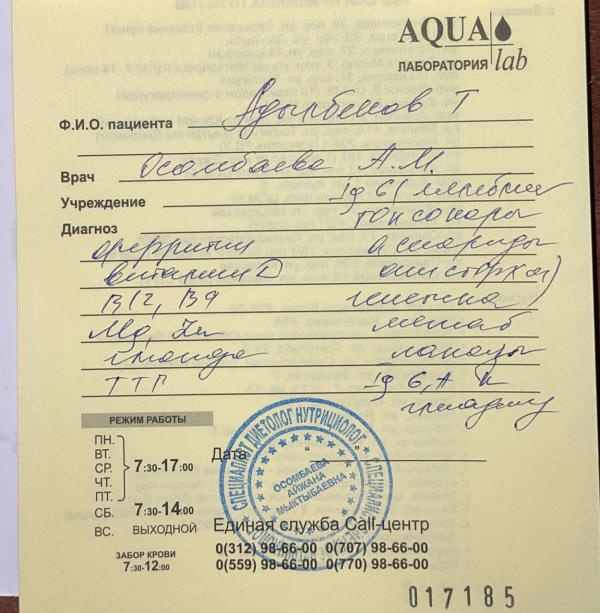 AQUA lab
ЛАБОРАТОРИЯ
Ф.И.О. пациента Адылбеков Т
Врач Осомбаева А.М.
Учреждение Ig G (лямблии
Диагноз токсокары
ферритин аскариды
витамин D описторхи)
B12, B9 печень
Mg, Zn
глюкоза
ТТГ Ig G, A к
глиадину
РЕЖИМ РАБОТЫ
ПН.
ВТ.
СР. 7:30-17:00
ЧТ.
ПТ.
СБ. 7:30-14:00
ВС. ВЫХОДНОЙ
ЗАБОР КРОВИ
7:30-12:00
Дата
СПЕЦИАЛИСТ ДИЕТОЛОГ НУТРИЦИОЛОГ
ОСОМБАЕВА
АЙЖАНА
МЫКТЫБАЕВНА
Единая служба Call-центр
0(312) 98-66-00 0(707) 98-66-00
0(559) 98-66-00 0(770) 98-66-00
017185